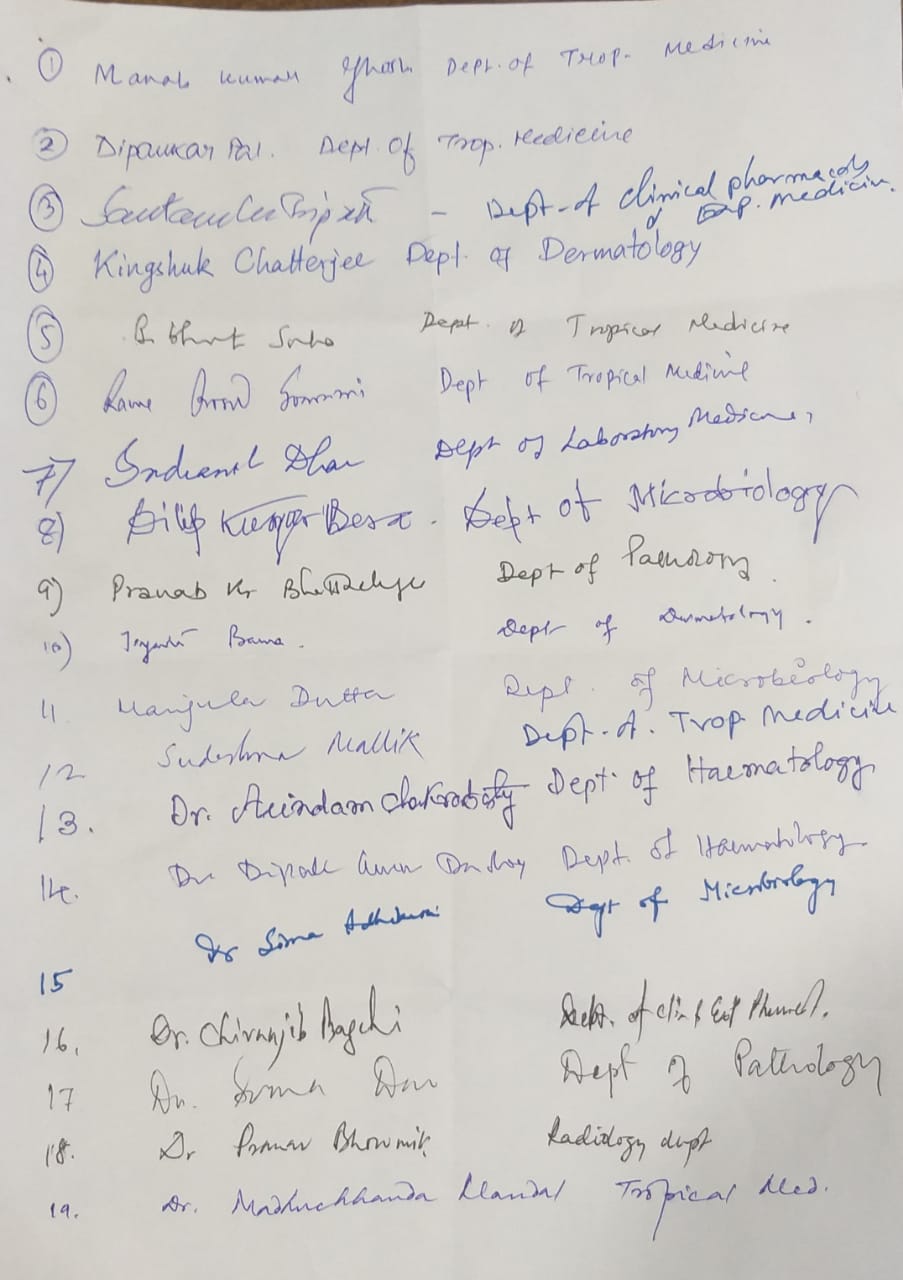 ① Manab Kumar Ghosh Dept. of Trop. Medicine
② Dipankar Pal. Dept. of Trop. Medicine
③ - Dept. of Clinical pharmacology
& Exp. Medicine.
④ Kingshuk Chatterjee Dept. of Dermatology
⑤ Saha Dept. of Tropical Medicine
⑥ Dept of Tropical Medicine
7) Indranil Dhar Dept of Laboratory Medicine,
8) Dilip Kumar Bera. Dept of Microbiology
9) Pranab Kr Bhattacharya Dept of Pathology
10) Barma. Dept of Dermatology.
11 Manjula Dutta Dept. of Microbiology
12 Sudeshna Mallik Dept. of. Trop Medicine
13. Dr. Arindam Chakraborty Dept. of Haematology
14. Dr Dipak Dept. of Haematology
Dr Sima Adhikari Dept of Microbiology
15
16. Dr. Chiranjib Bagchi Dept. of Clin & Exp Pharmacol.
17 Dr. Dept of Pathology
18. Dr Bhowmik Radiology dept
19. Dr. Madhuchhanda Mandal Tropical Med.